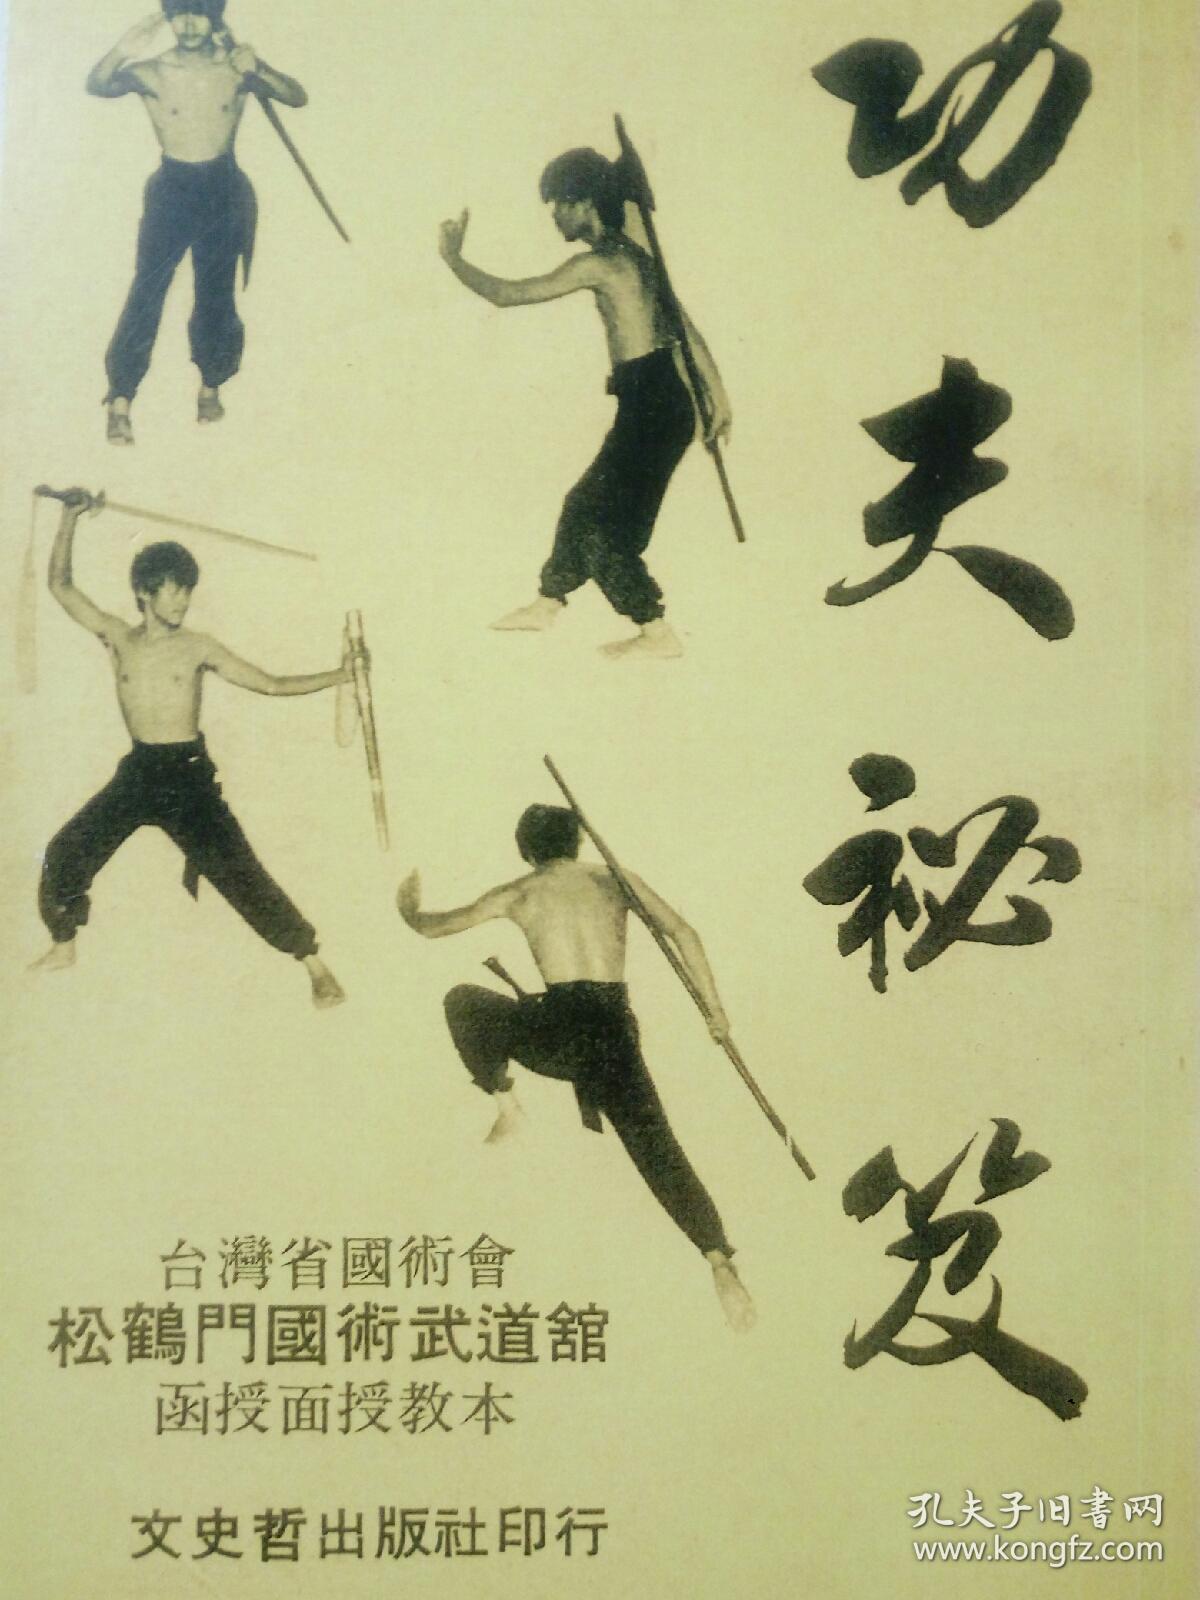 功夫祕笈
台灣省國術會
松鶴門國術武道舘
函授面授教本
文史哲出版社印行
孔夫子旧書网
www.kongfz.com